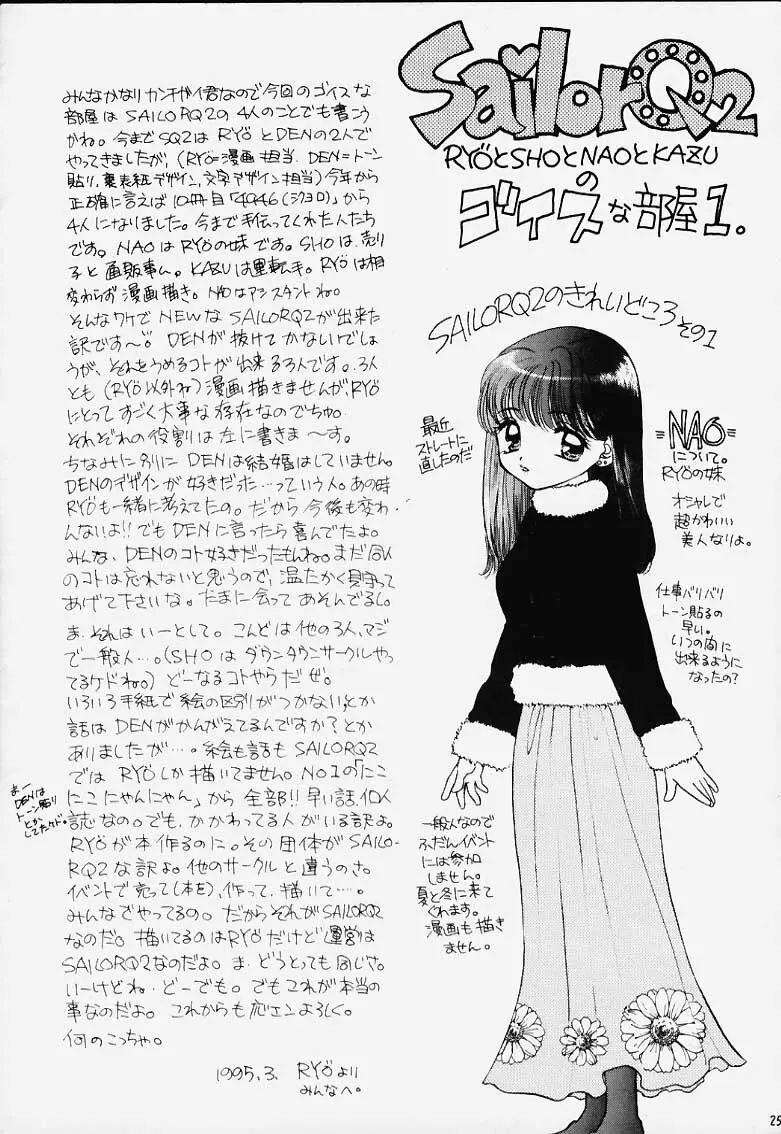 SailorQ2
RYÖとSHOとNAOとKAZU
の
ゴイスな部屋1.
みんなかなりカンチガイ君なので今回のゴイスな
部屋はSAILORQ2の4人のことでも書こう
かね。今までSQ2はRYÖとDENの2人で
やってきましたが、(RYÖ=漫画担当、DEN=トーン
貼り、裏表紙デザイン、文字デザイン担当)今年から
正確に言えば10冊目「4946(シクヨロ)」から
4人になりました。今まで手伝ってくれた人たち
です。NAOはRYÖの妹です。SHOは、売り
子と通販事ム。KAZUは運転手。RYÖは相
変わらず漫画描き。NAOはアシスタントね。
そんなワケでNEWなSAILORQ2が出来た
訳です〜。DENが抜けてかないけでしょ
うが、それをうめるコトが出来る3人です。3人
とも(RYÖ以外ね)漫画描きませんが、RYÖ
にとってすごく大事な存在なのでちゅ。
それぞれの役割は左に書きま〜す。
ちなみに別にDENは結婚はしていません。
DENのデザインが好きだった…っていう人。あの時
RYÖも一緒に考えてたの。だから今後も変わ
んないよ!!でもDENに言ったら喜んでたよ。
みんな、DENのコト好きだったもんね。まだ同人
のコトは忘れないと思うので、温たかく見守って
あげて下さいな。たまに会ってあそんでるし。
ま、それはいーとして。こんどは他の3人、マジ
で一般人…。(SHOはダウンタウンサークルやっ
てるケドね。)どーなるコトやらだぜ。
いろいろ手紙で絵の区別がつかない、とか
話はDENがかんがえてるんですか?とか
ありましたが…。絵も話もSAILORQ2
ではRYÖしか描いてません。NO1の「にこ
にこにゃんにゃん」から全部!!早い話、個人
誌なの。でも、かかわってる人がいる訳よ。
RYÖが本作るのに。その団体がSAILO-
RQ2な訳よ。他のサークルと違うのさ。
イベントで売って(本を)、作って、描いて…。
みんなでやってるの。だからそれがSAILORQ2
なのだ。描いてるのはRYÖだけど運営は
SAILORQ2なのだよ。ま、どうとっても同じさ。
いーけどね、どーでも。でもこれが本当の
事なのだよ。これからも応エンよろしく。
何のこっちゃ。
1995.3. RYÖより
みんなへ。
まー
DENは
トーン貼り
とか
してたケド。
SAILORQ2のきれいどころ
その1
最近
ストレートに
直したのだ
=NAO=
について。
RYÖの妹
オシャレで
超かわいい
美人なりよ。
仕事バリバリ
トーン貼るの
早い。
いつの間に
出来るように
なったの?
一般人なので
ふだんイベント
には参加
しません。
夏と冬に来て
くれます。
漫画も描き
ません。
25